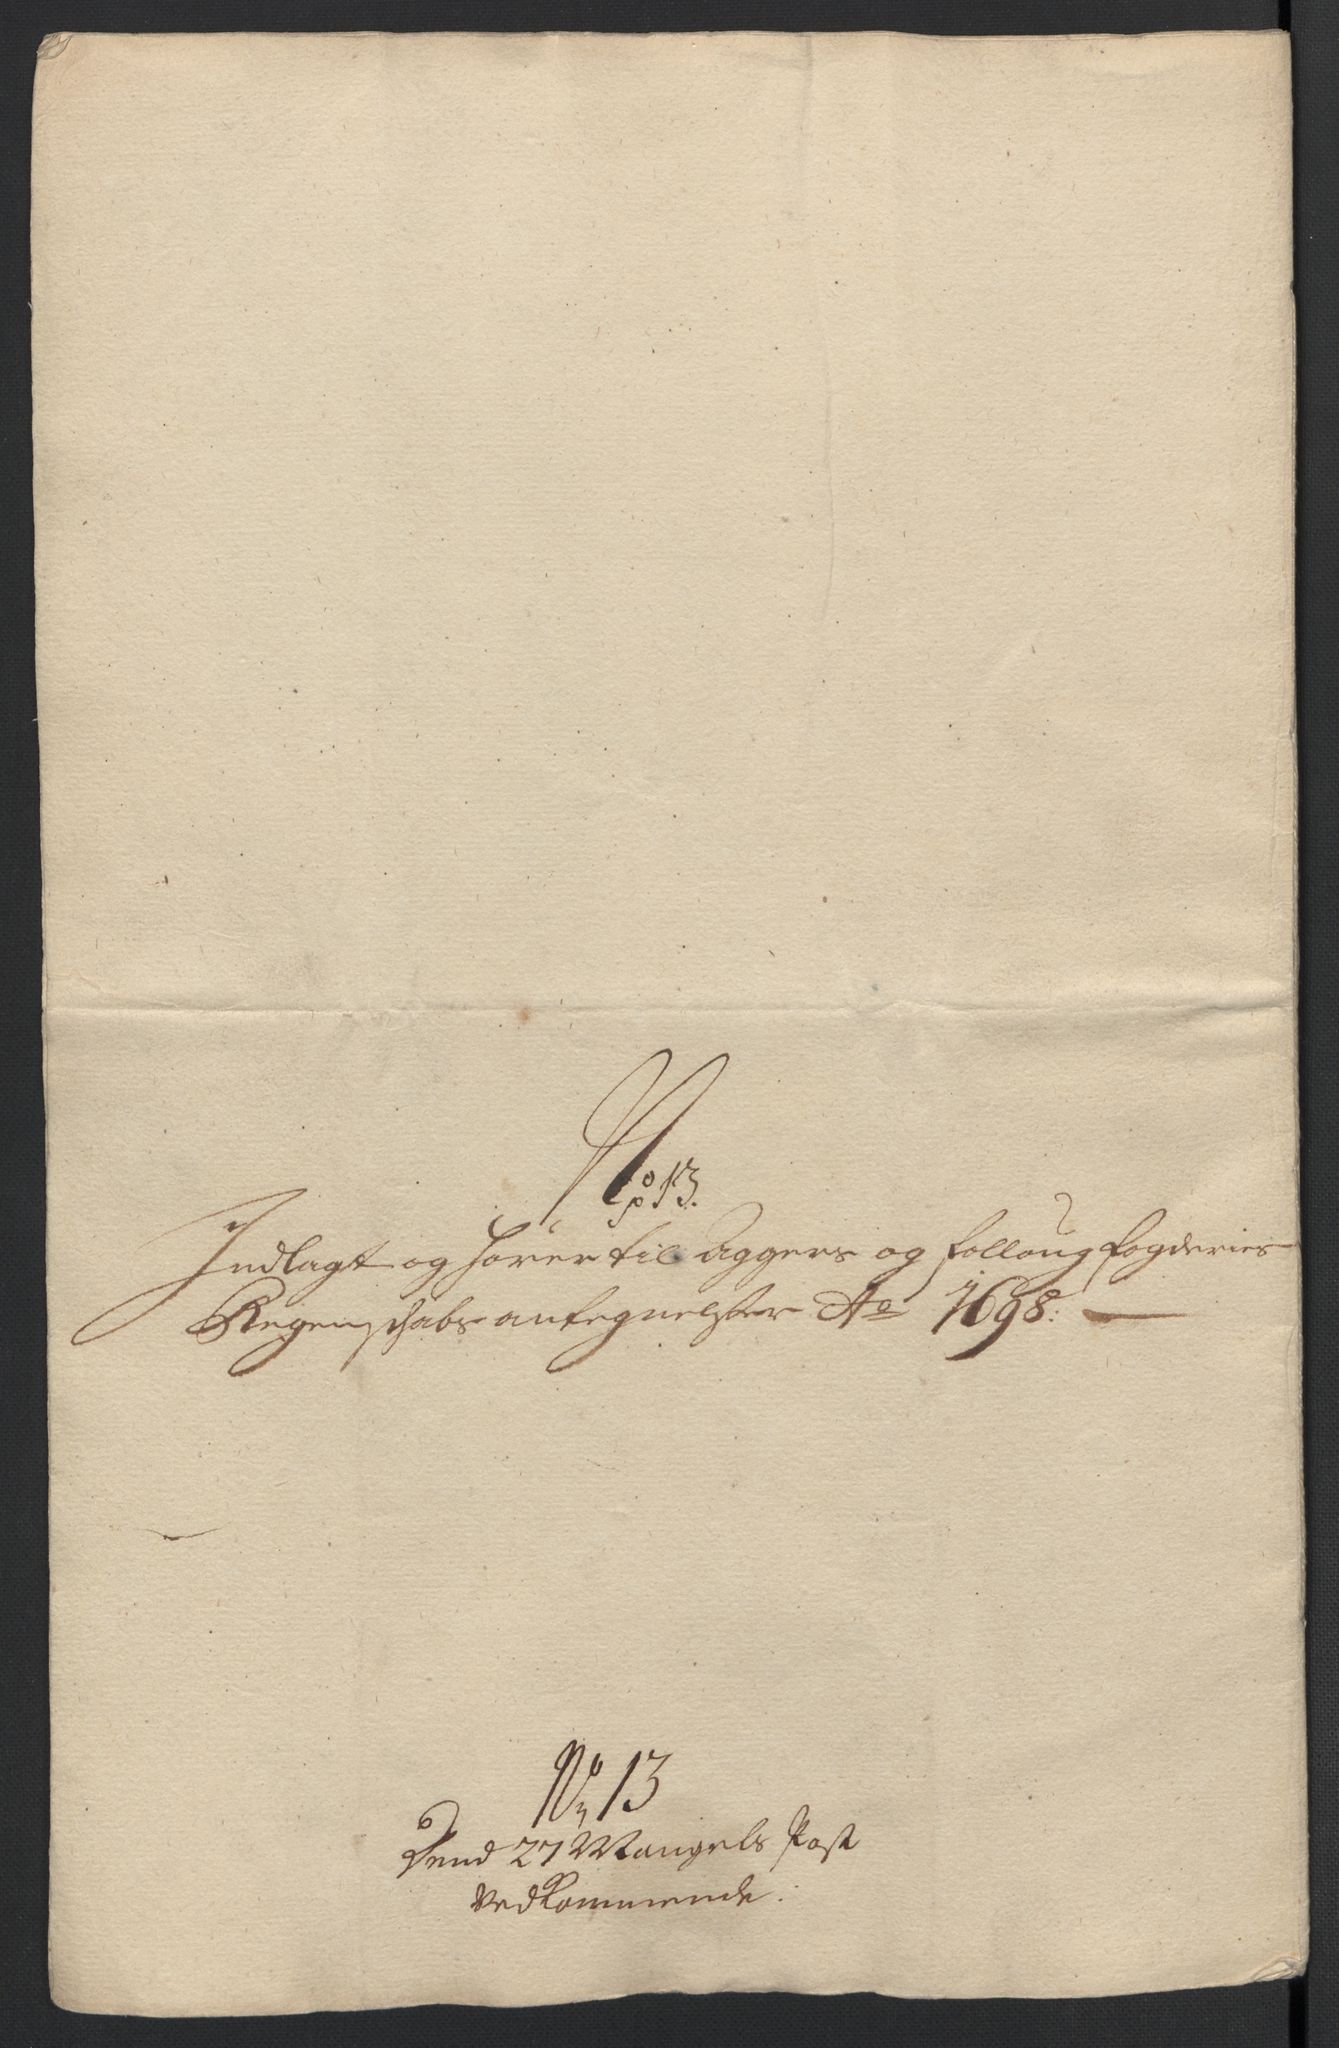 No: 13.
Indlagt og hører til Aggers og Folloug fogderies
Regenschabs antegnelser Ao 1698:
No 13
Dend 27 Mangels Post
Vedkommende.